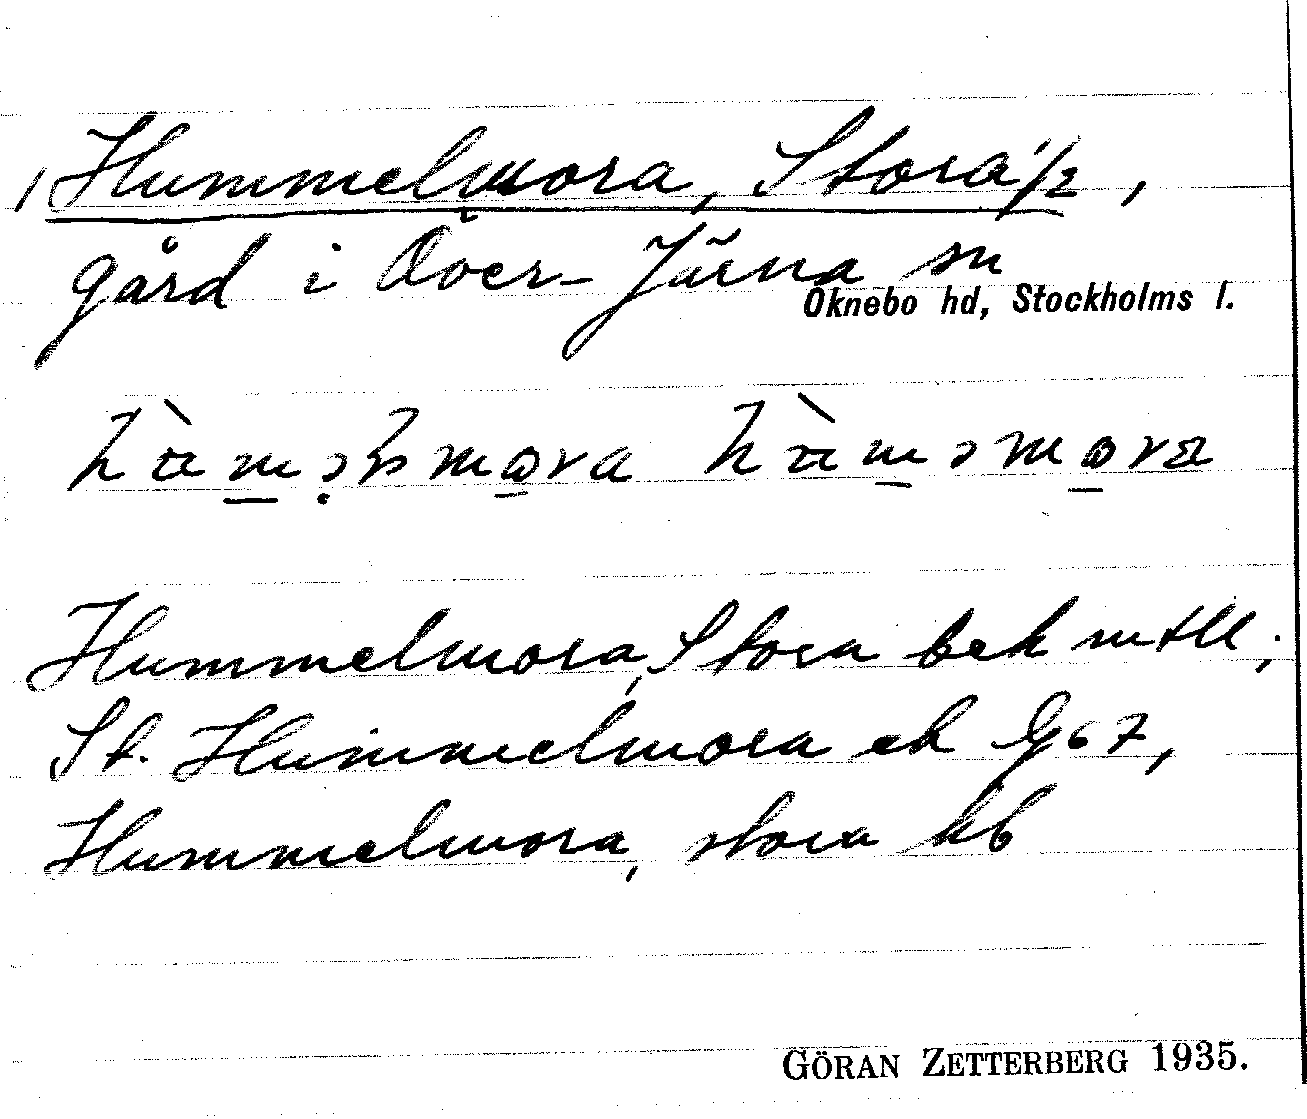 Hummelmora, Stora 1/2,
gård i Över-Järna sn
Öknebo hd, Stockholms l.
Hummelmora, Stora bek mtll;
St. Hummelmora ek G67,
Hummelmora, stora kb
GÖRAN ZETTERBERG 1935.